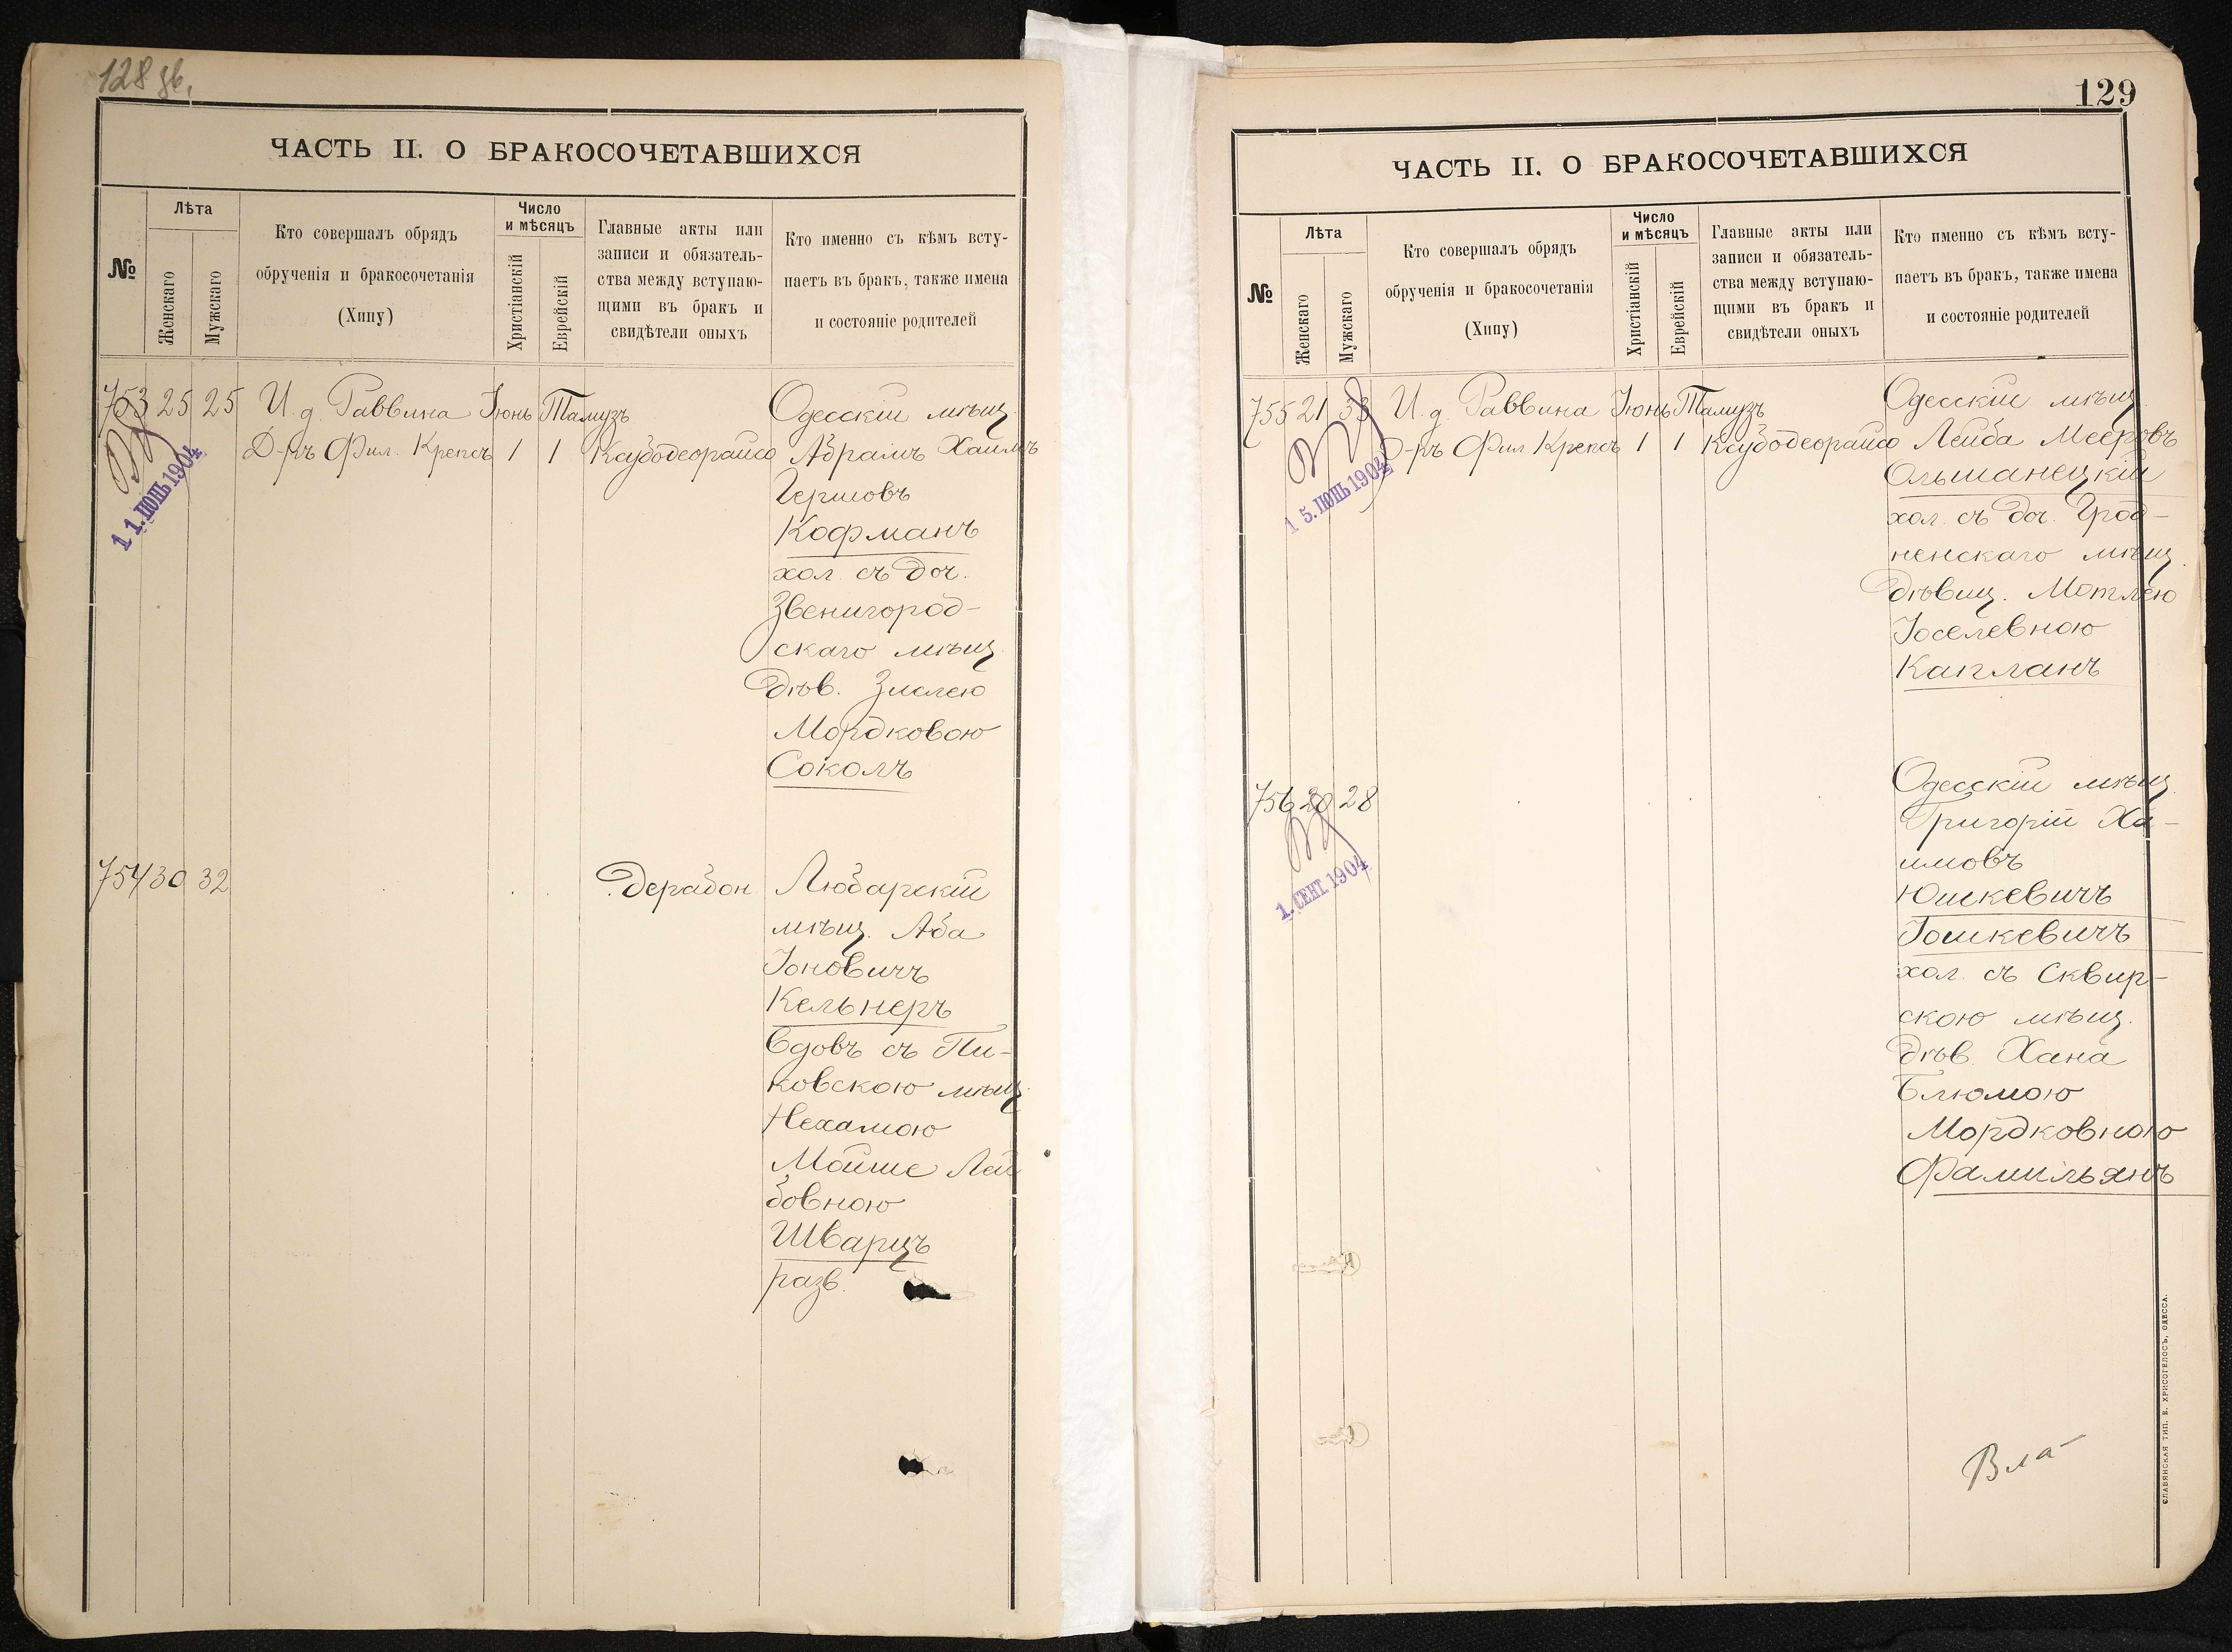 128 зв.
ЧАСТЬ II. О БРАКОСОЧЕТАВШИХСЯ
№
Лѣта
Женскаго
Мужскаго
Кто совершалъ обрядъ
обрученія и бракосочетанія
(Хипу)
Число
и мѣсяцъ
Христіанскій
Еврейскій
Главные акты или
записи и обязатель-
ства между вступаю-
щими въ бракъ и
свидѣтели оныхъ
Кто именно съ кѣмъ всту-
паетъ въ бракъ, также имена
и состояніе родителей
753 25 25 И. д. Раввина Іюнь Тамузъ Одесскій мѣщ.
Д-ръ Фил. Крепсъ 1 1 Каубодеорайсо Абрамъ Хаимъ
Гершовъ
Кофманъ
хол. съ доч.
Звенигород-
скаго мѣщ.
дѣв. Зислею
Мордковою
Соколъ
11. ІЮНЬ 1904
754 30 32 Дерабон Любарскій
мѣщ. Аба
Іоновичъ
Кельнеръ
вдовъ съ Пи-
ковскою мѣщ.
Нехамою
Мойше Лей
бовною
Шварцъ
разв.
129
ЧАСТЬ II. О БРАКОСОЧЕТАВШИХСЯ
№
Лѣта
Женскаго
Мужскаго
Кто совершалъ обрядъ
обрученія и бракосочетанія
(Хипу)
Число
и мѣсяцъ
Христіанскій
Еврейскій
Главные акты или
записи и обязатель-
ства между вступаю-
щими въ бракъ и
свидѣтели оныхъ
Кто именно съ кѣмъ всту-
паетъ въ бракъ, также имена
и состояніе родителей
755 21 33 И. д. Раввина Іюнь Тамузъ Одесскій мѣщ.
Д-ръ Фил Крепсъ 1 1 Каубодеорайсо Лейба Мееровъ
Ольшанецкій
хол. съ доч. Грод-
ненскаго мѣщ.
дѣвиц. Мотлею
Іоселевною
Капланъ
15. ІЮНЬ 1904
756 20 28 Одесскій мѣщ.
Григорій Ха-
имовъ
Юшкевичъ
Гошкевичъ
хол. съ Сквир-
скою мѣщ.
дѣв. Хана
Блюмою
Мордковною
Фамильянъ
1. СЕНТ. 1904
Вла-
СЛАВЯНСКАЯ ТИП. Е. ХРИСОГЕЛОСЪ, ОДЕССА.